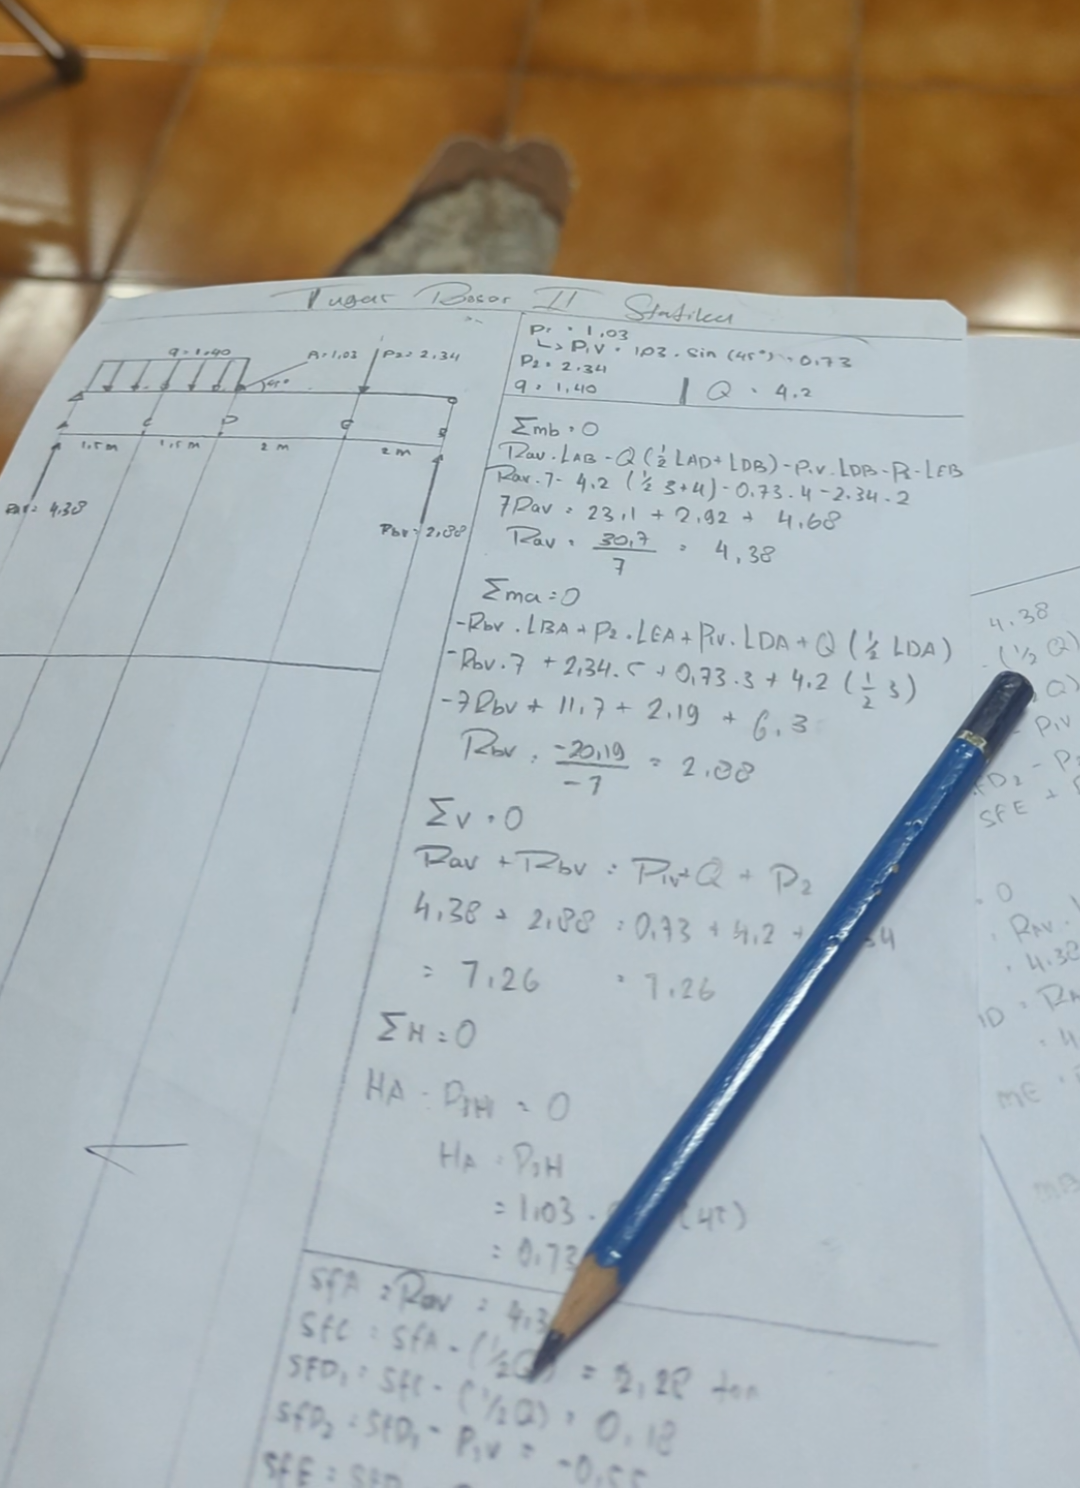 Tugas Besar II Statika
q = 1,40
P1 = 1,03
P2 = 2,34
45°
C
D
B
1,5 m
1,5 m
2 m
2 m
Rav = 4,38
Rbv = 2,88
P1 = 1,03
↳ P1V = 1,03 . sin (45°) = 0,73
P2 = 2,34
q = 1,40 | Q = 4,2
Σmb = 0
Rav . LAB - Q (½ LAD + LDB) - P1V . LDB - P2 - LEB
Rav . 7 - 4.2 (½ 3+4) - 0,73 . 4 - 2.34 . 2
7Rav = 23,1 + 2,92 + 4,68
Rav = 30,7/7 = 4,38
Σma = 0
-Rbv . LBA + P2 . LEA + P1V . LDA + Q (½ LDA)
-Rbv . 7 + 2,34 . 5 + 0,73 . 3 + 4.2 (½ 3)
-7Rbv + 11,7 + 2,19 + 6,3
Rbv = -20,19/-7 = 2,88
Σv = 0
Rav + Rbv = P1V + Q + P2
4,38 + 2,88 = 0,73 + 4,2 + 34
= 7,26 = 7,26
ΣH = 0
HA - P1H = 0
HA = P1H
= 1,03 . (45)
= 0,73
SFA = Rav = 4,3
SFC = SFA - (½Q) = 2,28 ton
SFD1 = SFC - (½Q) = 0,18
SFD2 = SFD1 - P1V = -0,55
SFE = SFD
4.38
(½ Q)
Q)
- P1V
FD2 - P2
SFE +
= 0
= RAV .
= 4.38
MD = RA
= 4
ME =